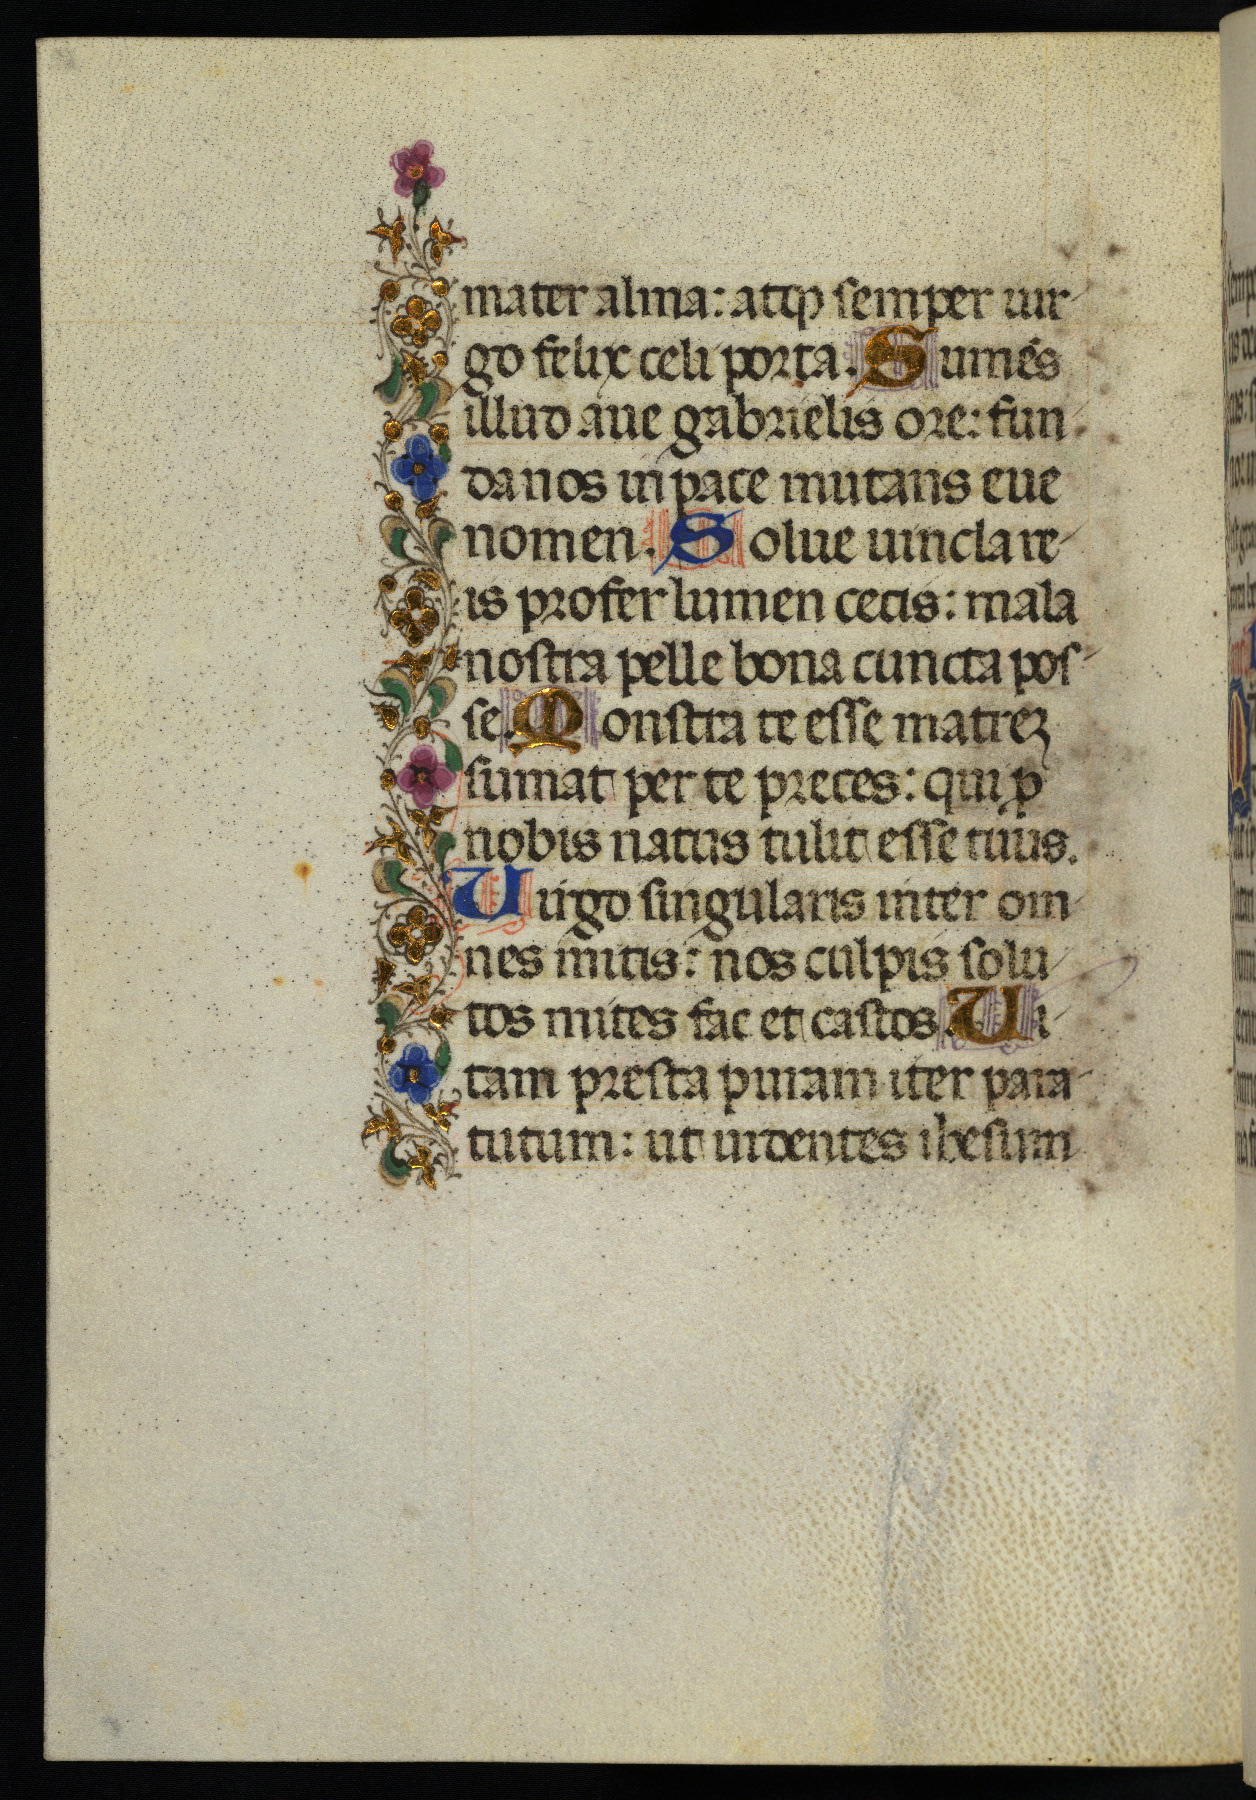 mater alma: atqꝫ semper uir-
go felix celi porta. Sumēs
illud aue gabrielis ore: fun-
da nos in pace mutans eue
nomen. Solue uincla re-
is profer lumen cecis: mala
nostra pelle bona cuncta pos-
se. Monstra te esse matreꝫ
sumat per te preces: qui ꝓ
nobis natus tulit esse tuus.
Uirgo singularis inter om-
nes mitis: nos culpis solu-
tos mites fac et castos. Ui-
tam presta puram iter para-
tutum: ut uidentes ihesum